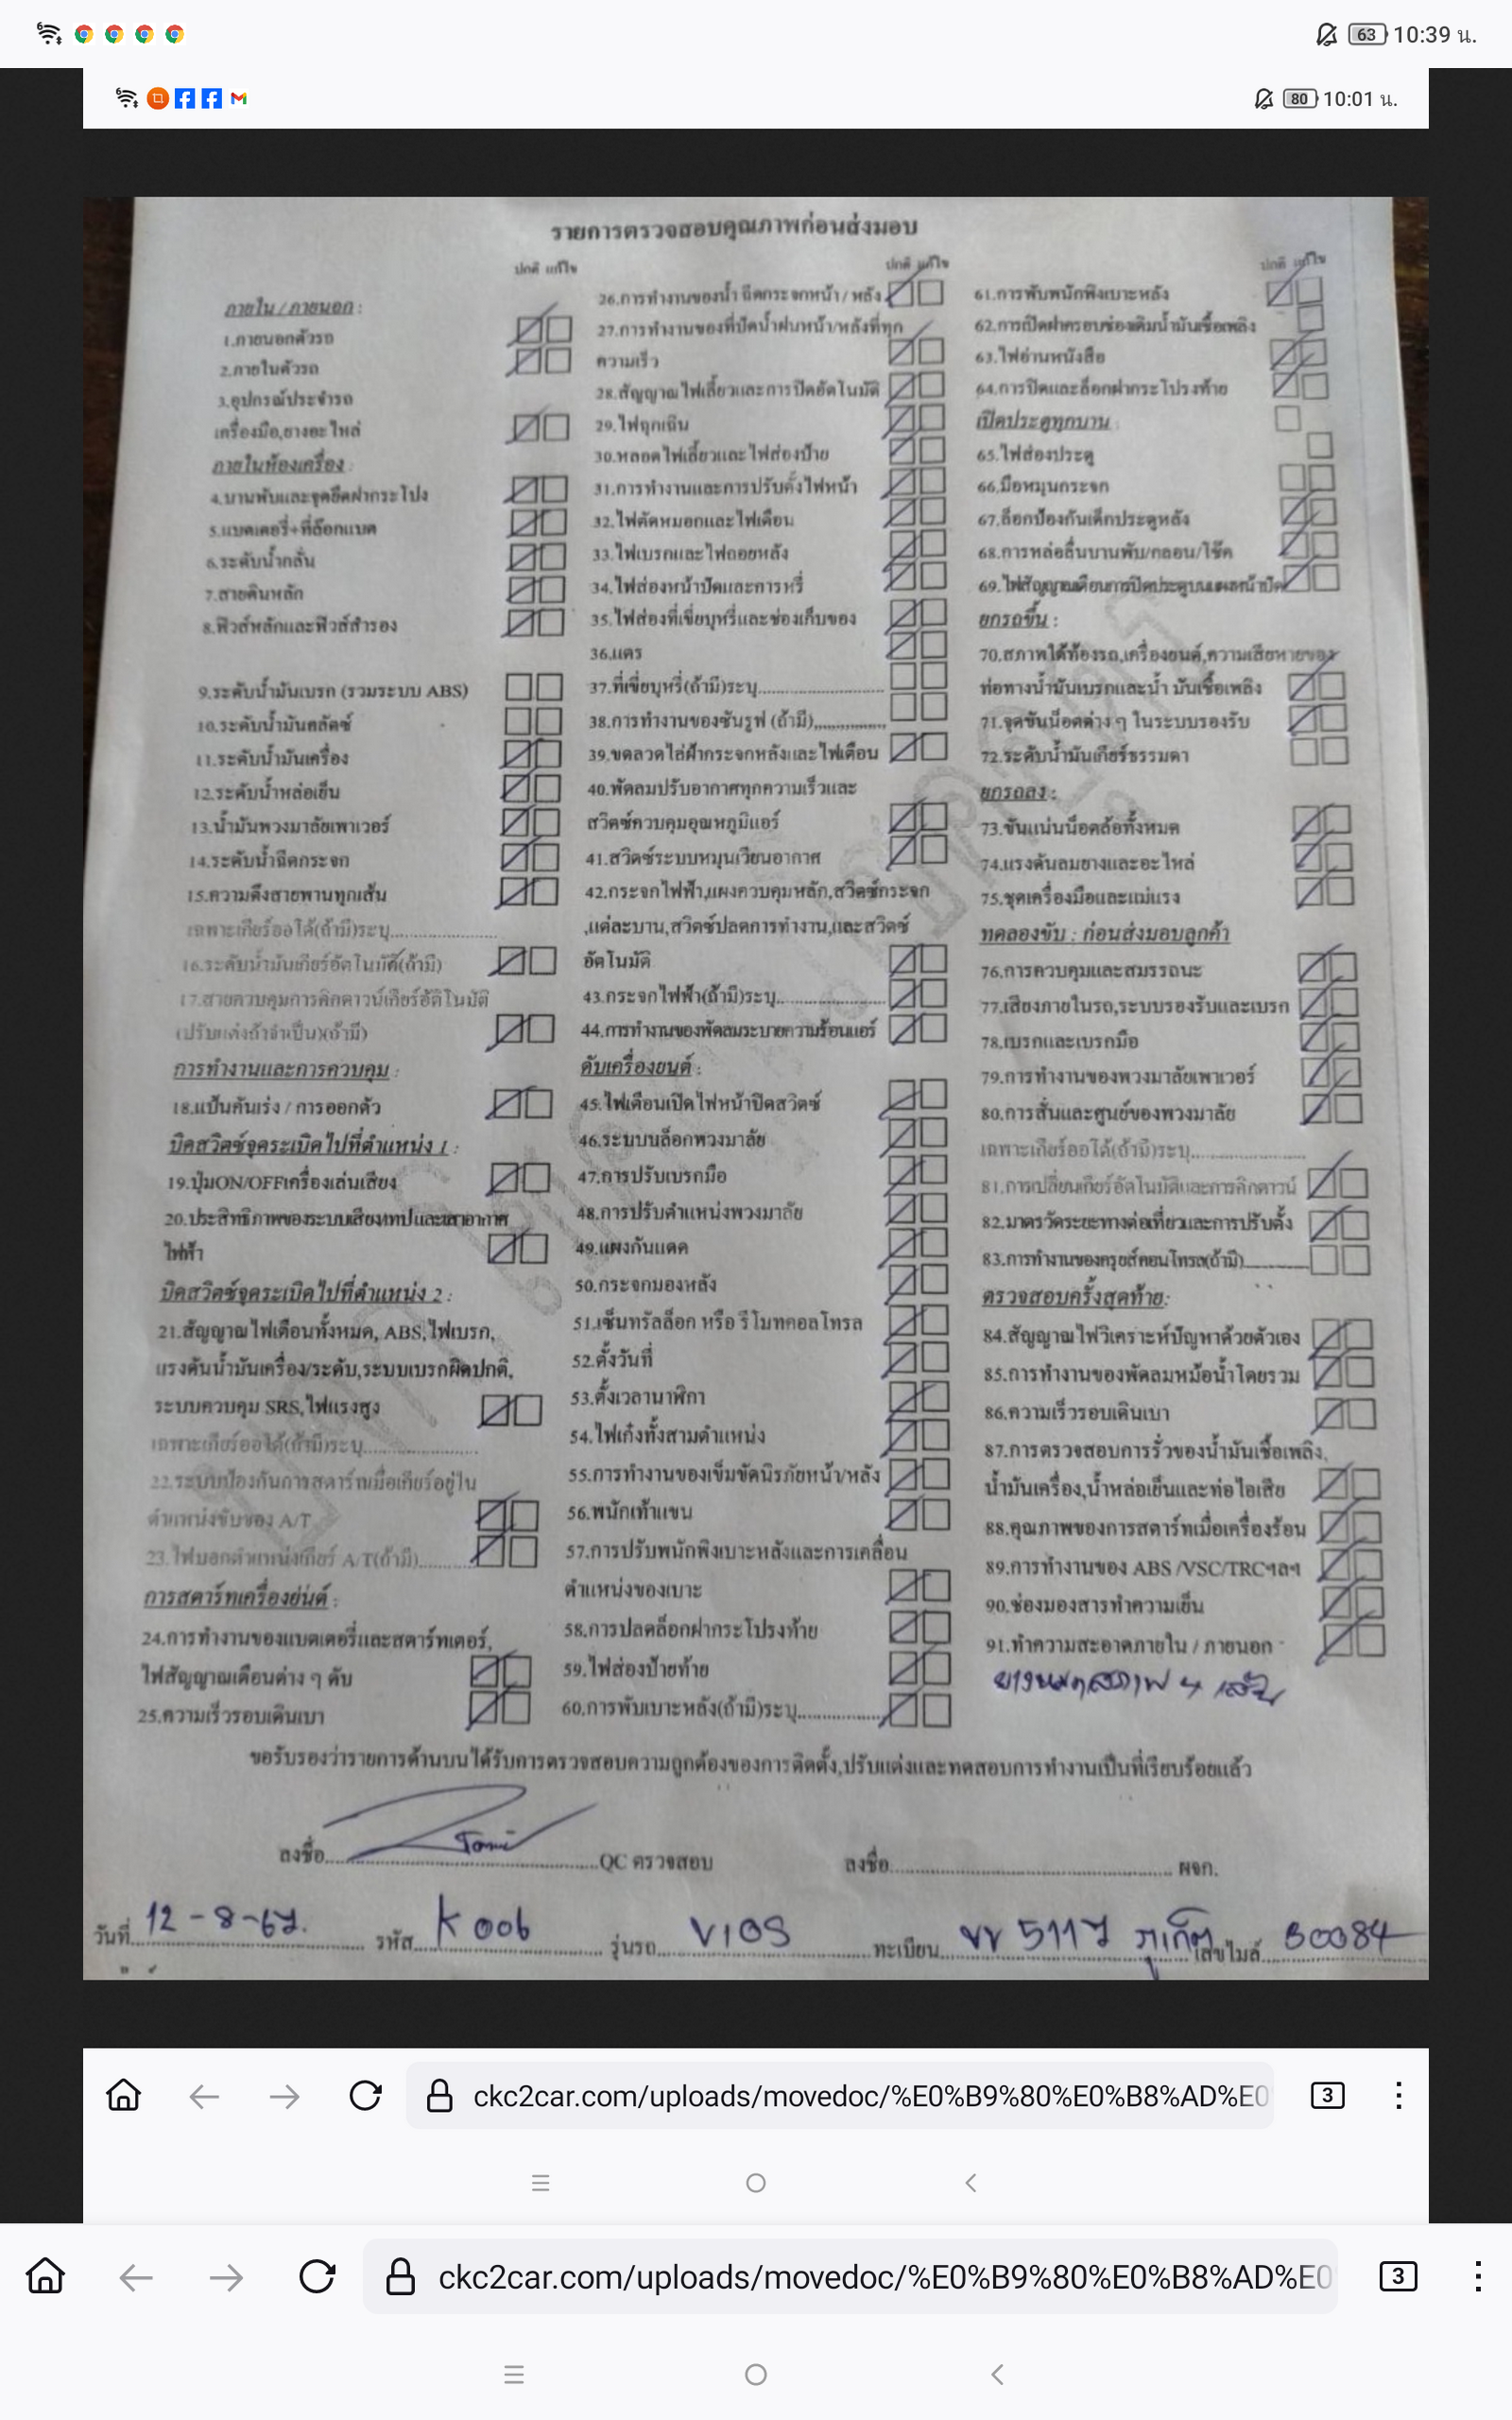 10:39 น.
63
10:01 น.
80
รายการตรวจสอบคุณภาพก่อนส่งมอบ
ปกติ แก้ไข
ภายใน / ภายนอก :
1.ภายนอกตัวรถ
2.ภายในตัวรถ
3.อุปกรณ์ประจำรถ
เครื่องมือ,ยางอะไหล่
ภายในห้องเครื่อง :
4.บานพับและจุดยึดฝากระโปง
5.แบตเตอรี่+ที่ล๊อกแบต
6.ระดับน้ำกลั่น
7.สายดินหลัก
8.ฟิวส์หลักและฟิวส์สำรอง
9.ระดับน้ำมันเบรก (รวมระบบ ABS)
10.ระดับน้ำมันคลัตซ์
11.ระดับน้ำมันเครื่อง
12.ระดับน้ำหล่อเย็น
13.น้ำมันพวงมาลัยเพาเวอร์
14.ระดับน้ำฉีดกระจก
15.ความตึงสายพานทุกเส้น
เฉพาะเกียร์ออโต้(ถ้ามี)ระบุ
16.ระดับน้ำมันเกียร์อัตโนมัติ(ถ้ามี)
17.สายควบคุมการคิกดาวน์เกียร์อัติโนมัติ
(ปรับแต่งถ้าจำเป็น)(ถ้ามี)
การทำงานและการควบคุม :
18.แป้นคันเร่ง / การออกตัว
บิดสวิตซ์จุดระเบิดไปที่ตำแหน่ง 1 :
19.ปุ่มON/OFFเครื่องเล่นเสียง
20.ประสิทธิภาพของระบบเสียงเทปและเสาอากาศ
ไฟฟ้า
บิดสวิตซ์จุดระเบิดไปที่ตำแหน่ง 2 :
21.สัญญาณไฟเตือนทั้งหมด, ABS,ไฟเบรก,
แรงดันน้ำมันเครื่อง/ระดับ,ระบบเบรกผิดปกติ,
ระบบควบคุม SRS,ไฟแรงสูง
เฉพาะเกียร์ออโต้(ถ้ามี)ระบุ
22.ระบบป้องกันการสตาร์ทเมื่อเกียร์อยู่ใน
ตำแหน่งขับของ A/T
23.ไฟบอกตำแหน่งเกียร์ A/T(ถ้ามี)
การสตาร์ทเครื่องย่นต์ :
24.การทำงานของแบตเตอรี่และสตาร์ทเตอร์,
ไฟสัญญาณเตือนต่าง ๆ ดับ
25.ความเร็วรอบเดินเบา
ปกติ แก้ไข
26.การทำงานของน้ำ ฉีดกระจกหน้า / หลัง
27.การทำงานของที่ปัดน้ำฝนหน้า/หลังที่ทุก
ความเร็ว
28.สัญญาณไฟเลี้ยวและการปิดอัตโนมัติ
29.ไฟฉุกเฉิน
30.หลอดไฟเลี้ยวและไฟส่องป้าย
31.การทำงานและการปรับตั้งไฟหน้า
32.ไฟตัดหมอกและไฟเตือน
33.ไฟเบรกและไฟถอยหลัง
34.ไฟส่องหน้าปัดและการหรี่
35.ไฟส่องที่เขี่ยบุหรี่และช่องเก็บของ
36.แตร
37.ที่เขี่ยบุหรี่(ถ้ามี)ระบุ
38.การทำงานของซันรูฟ (ถ้ามี)
39.ขดลวดไล่ฝ้ากระจกหลังและไฟเตือน
40.พัดลมปรับอากาศทุกความเร็วและ
สวิตซ์ควบคุมอุณหภูมิแอร์
41.สวิตซ์ระบบหมุนเวียนอากาศ
42.กระจกไฟฟ้า,แผงควบคุมหลัก,สวิตซ์กระจก
,แต่ละบาน,สวิตซ์ปลดการทำงาน,และสวิตซ์
อัตโนมัติ
43.กระจกไฟฟ้า(ถ้ามี)ระบุ
44.การทำงานของพัดลมระบายความร้อนแอร์
ดับเครื่องยนต์ :
45.ไฟเตือนเปิดไฟหน้าปิดสวิตซ์
46.ระบบบล็อกพวงมาลัย
47.การปรับเบรกมือ
48.การปรับตำแหน่งพวงมาลัย
49.แผงกันแดด
50.กระจกมองหลัง
51.เซ็นทรัลล็อก หรือ รีโมทคอลโทรล
52.ตั้งวันที่
53.ตั้งเวลานาฬิกา
54.ไฟเก๋งทั้งสามตำแหน่ง
55.การทำงานของเข็มขัดนิรภัยหน้า/หลัง
56.พนักเท้าแขน
57.การปรับพนักพิงเบาะหลังและการเคลื่อน
ตำแหน่งของเบาะ
58.การปลดล็อกฝากระโปรงท้าย
59.ไฟส่องป้ายท้าย
60.การพับเบาะหลัง(ถ้ามี)ระบุ
ปกติ แก้ไข
61.การพับพนักพิงเบาะหลัง
62.การเปิดฝาครอบช่องเติมน้ำมันเชื้อเพลิง
63.ไฟอ่านหนังสือ
64.การปิดและล็อกฝากระโปรงท้าย
เปิดประตูทุกบาน :
65.ไฟส่องประตู
66.มือหมุนกระจก
67.ล็อกป้องกันเด็กประตูหลัง
68.การหล่อลื่นบานพับ/กลอน/โช๊ค
69.ไฟสัญญาณเตือนการปิดประตูบนแผงหน้าปัด
ยกรถขึ้น :
70.สภาพใต้ท้องรถ,เครื่องยนต์,ความเสียหายของ
ท่อทางน้ำมันเบรกและน้ำ มันเชื้อเพลิง
71.จุดขันน็อตต่าง ๆ ในระบบรองรับ
72.ระดับน้ำมันเกียร์ธรรมดา
ยกรถลง :
73.ขันแน่นน็อตล้อทั้งหมด
74.แรงดันลมยางและอะไหล่
75.ชุดเครื่องมือและแม่แรง
ทดลองขับ : ก่อนส่งมอบลูกค้า
76.การควบคุมและสมรรถนะ
77.เสียงภายในรถ,ระบบรองรับและเบรก
78.เบรกและเบรกมือ
79.การทำงานของพวงมาลัยเพาเวอร์
80.การสั่นและศูนย์ของพวงมาลัย
เฉพาะเกียร์ออโต้(ถ้ามี)ระบุ
81.การเปลี่ยนเกียร์อัตโนมัติและการคิกดาวน์
82.มาตรวัดระยะทางต่อเที่ยวและการปรับตั้ง
83.การทำงานของครูยส์คอนโทรล(ถ้ามี)
ตรวจสอบครั้งสุดท้าย:
84.สัญญาณไฟวิเคราะห์ปัญหาด้วยตัวเอง
85.การทำงานของพัดลมหม้อน้ำโดยรวม
86.ความเร็วรอบเดินเบา
87.การตรวจสอบการรั่วของน้ำมันเชื้อเพลิง,
น้ำมันเครื่อง,น้ำหล่อเย็นและท่อไอเสีย
88.คุณภาพของการสตาร์ทเมื่อเครื่องร้อน
89.การทำงานของ ABS /VSC/TRCฯลฯ
90.ช่องมองสารทำความเย็น
91.ทำความสะอาดภายใน / ภายนอก
ยางหมดสภาพ 4 เส้น
ขอรับรองว่ารายการด้านบนได้รับการตรวจสอบความถูกต้องของการติดตั้ง,ปรับแต่งและทดสอบการทำงานเป็นที่เรียบร้อยแล้ว
ลงชื่อ QC ตรวจสอบ ลงชื่อ ผจก.
วันที่ 12-8-67 รหัส K006 รุ่นรถ VIOS ทะเบียน 5117 ภูเก็ต เลขไมล์ 80084
ckc2car.com/uploads/movedoc/%E0%B9%80%E0%B8%AD%E0
3
ckc2car.com/uploads/movedoc/%E0%B9%80%E0%B8%AD%E0
3